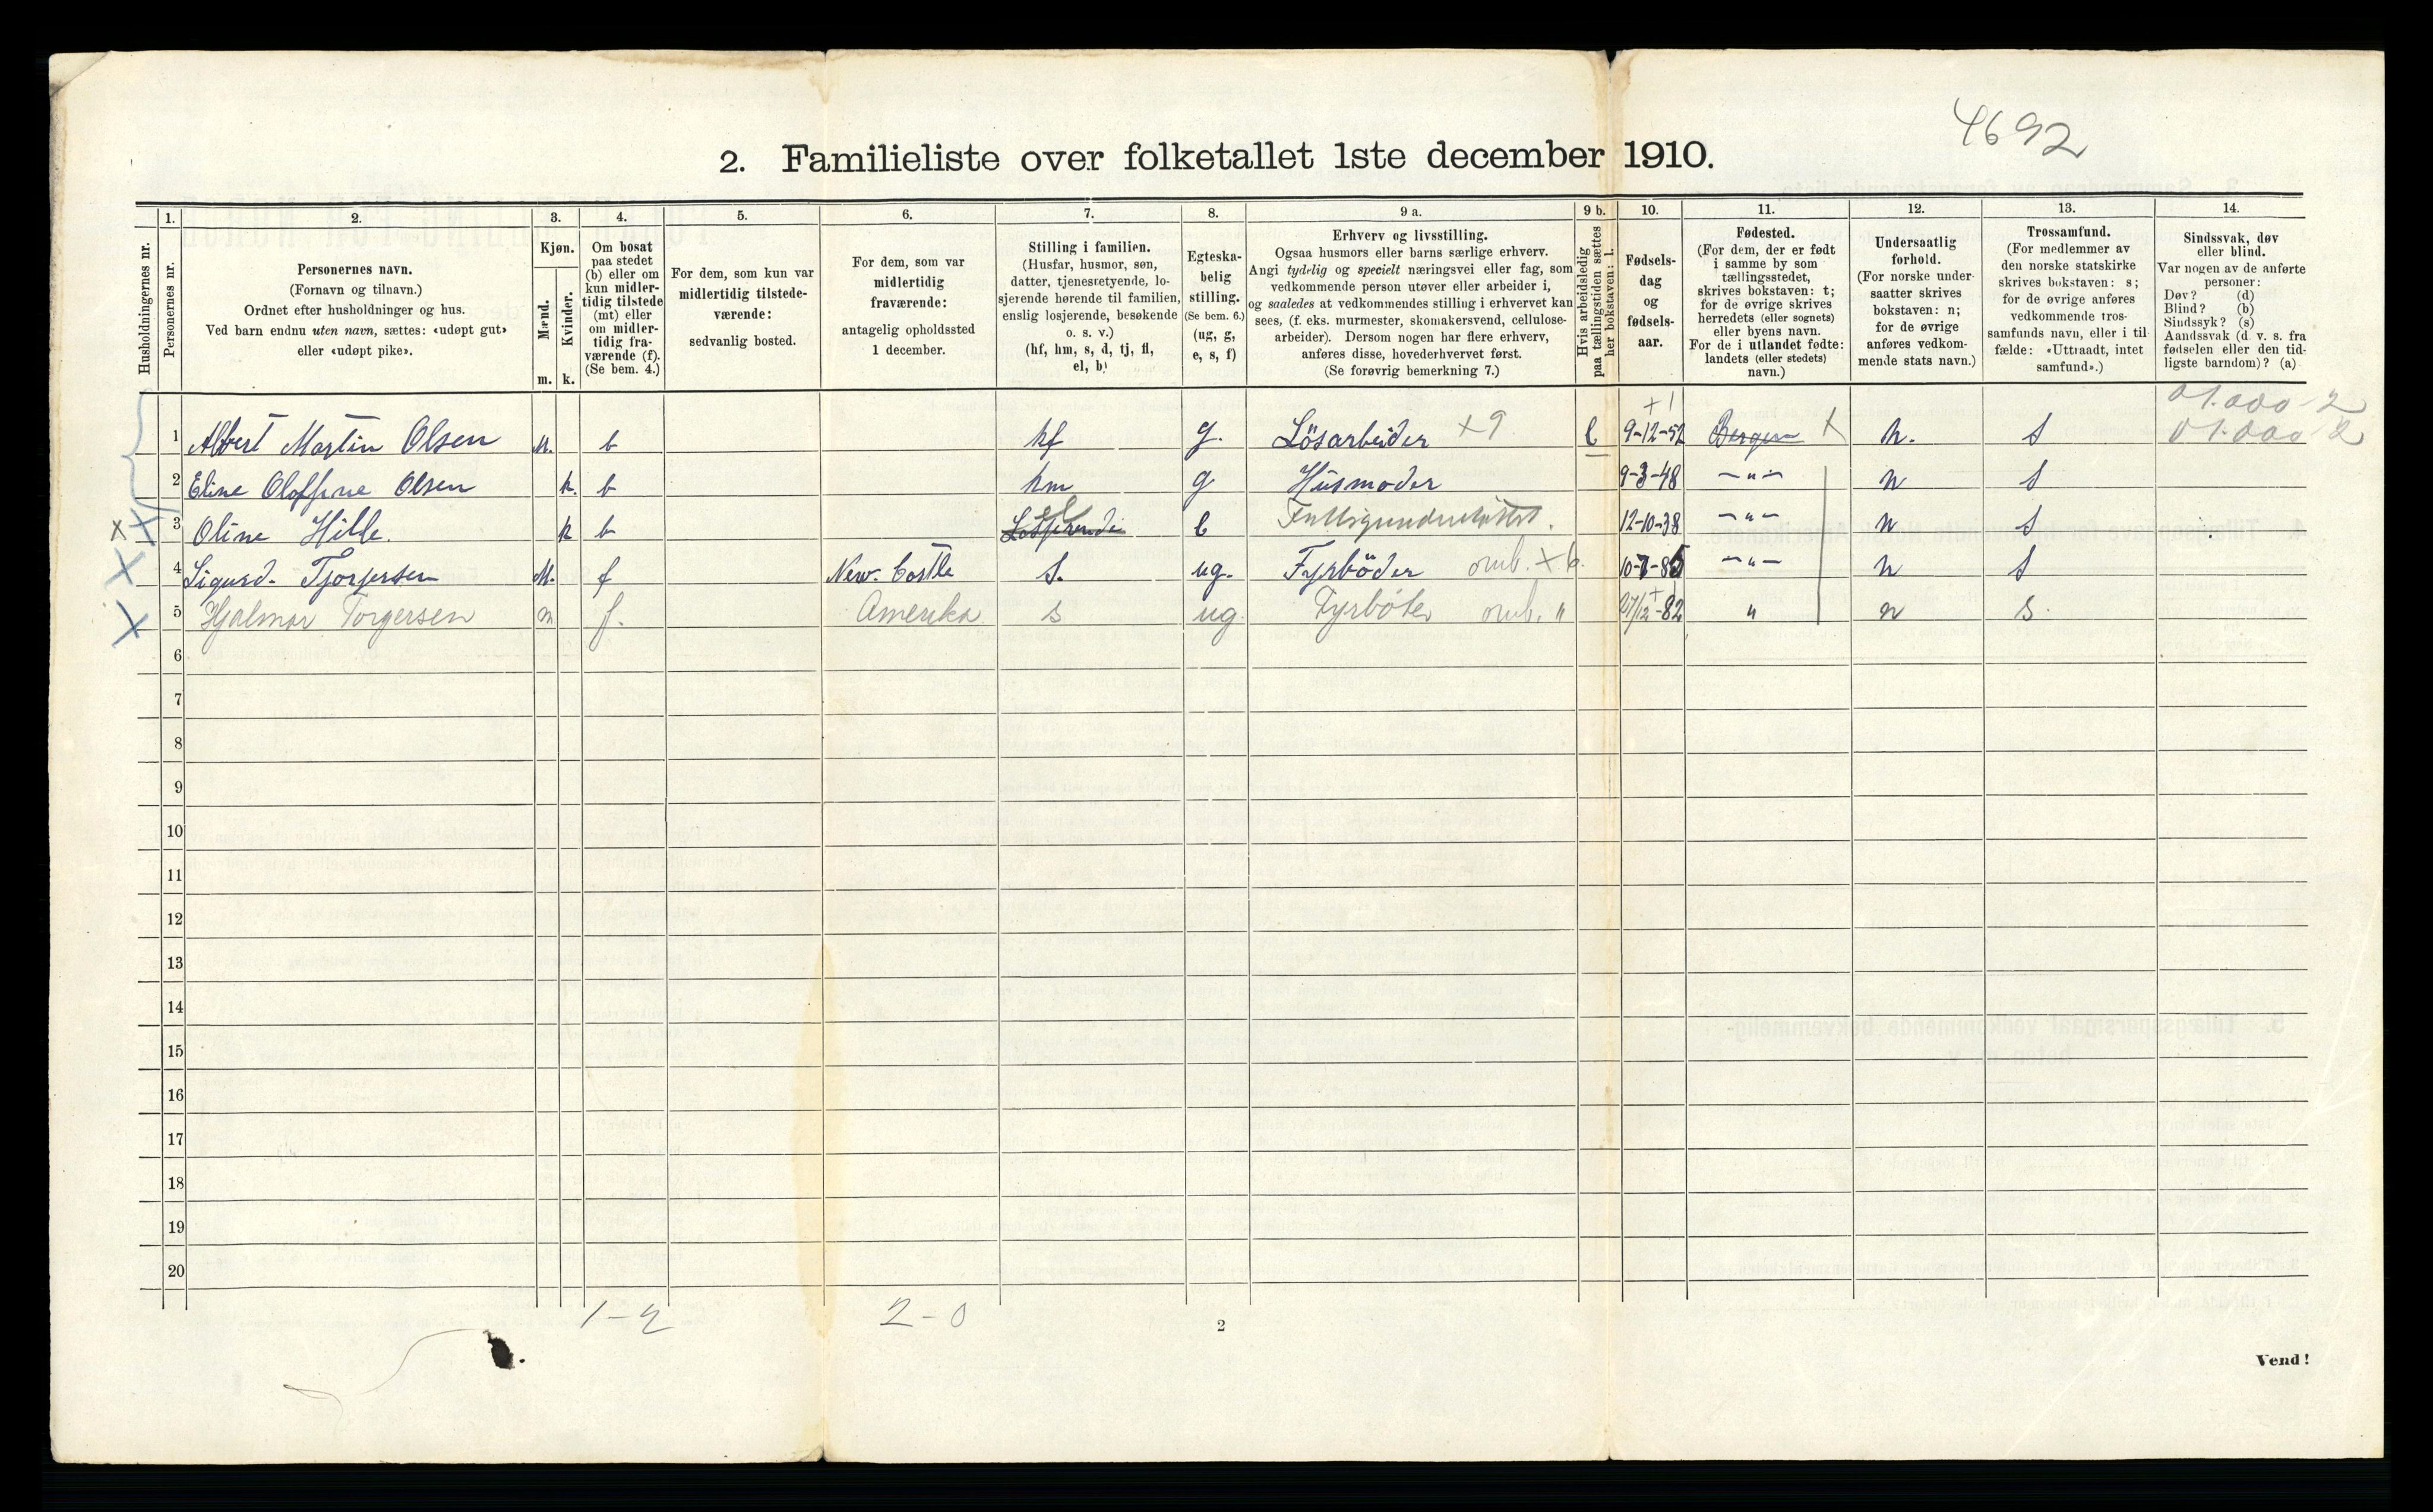 4692
2. Familieliste over folketallet 1ste december 1910.
1. 2. 3. 4. 5. 6. 7. 8. 9 a. 9 b. 10. 11. 12. 13. 14.
Husholdningernes nr.
Personernes nr.
Personernes navn.
(Fornavn og tilnavn.)
Ordnet efter husholdninger og hus.
Ved barn endnu uten navn, sættes: «udøpt gut»
eller «udøpt pike».
Kjøn.
Mænd.
m.
Kvinder.
k.
Om bosat
paa stedet
(b) eller om
kun midler-
tidig tilstede
(mt) eller
om midler-
tidig fra-
værende (f).
(Se bem. 4.)
For dem, som kun var
midlertidig tilstede-
værende:
sedvanlig bosted.
For dem, som var
midlertidig
fraværende:
antagelig opholdssted
1 december.
Stilling i familien.
(Husfar, husmor, søn,
datter, tjenestetyende, lo-
sjerende hørende til familien,
enslig losjerende, besøkende
o. s. v.)
(hf, hm, s, d, tj, fl,
el, b)
Egteska-
belig
stilling.
(Se bem. 6.)
(ug, g,
e, s, f)
Erhverv og livsstilling.
Ogsaa husmors eller barns særlige erhverv.
Angi tydelig og specielt næringsvei eller fag, som
vedkommende person utøver eller arbeider i,
og saaledes at vedkommendes stilling i erhvervet kan
sees, (f. eks. murmester, skomakersvend, cellulose-
arbeider). Dersom nogen har flere erhverv,
anføres disse, hovederhvervet først.
(Se forøvrig bemerkning 7.)
Hvis arbeidsledig
paa tællingstiden sættes
her bokstaven: l.
Fødsels-
dag
og
fødsels-
aar.
Fødested.
(For dem, der er født
i samme by som
tællingsstedet,
skrives bokstaven: t;
for de øvrige skrives
herredets (eller sognets)
eller byens navn.
For de i utlandet fødte:
landets (eller stedets)
navn.)
Undersaatlig
forhold.
(For norske under-
saatter skrives
bokstaven: n;
for de øvrige
anføres vedkom-
mende stats navn.)
Trossamfund.
(For medlemmer av
den norske statskirke
skrives bokstaven: s;
for de øvrige anføres
vedkommende tros-
samfunds navn, eller i til-
fælde: «Uttraadt, intet
samfund».)
Sindssvak, døv
eller blind.
Var nogen av de anførte
personer:
Døv? (d)
Blind? (b)
Sindssyk? (s)
Aandssvak (d. v. s. fra
fødselen eller den tid-
ligste barndom)? (a)
01.000-2
1 Albert Martin Olsen m. b hf g. Lösarbeider x9 l 9-12-52 Bergen x n. s 01.000-2
2 Eline Oloffine Olsen k. b hm g Husmoder 9-3-48 -"- n s
x 3 Oline Hille. k b Losjerende el 12-10-38 -"- n s
x 4 Sigurd. Torgersen M. f New. Castle s. ug. Fyrböder omb. x 6. 10-7-85 -"- n s
x 5 Hjalmar Torgersen m f. Amerika s ug. Fyrböter omb. " 27/12-82 " n s.
6
7
8
9
10
11
12
13
14
15
16
17
18
19
20
1-2 2-0
2
Vend!